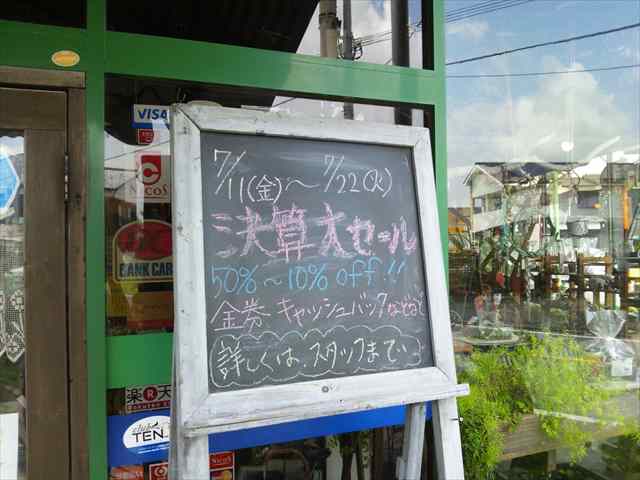 VISA
NICOS
BANK CARD
7/11(金)～7/22(火)
決算大セール
50%～10% off!!
金券 キャッシュバックなどなど
詳しくは、スタッフまで
楽天
club
TEN
NICOS